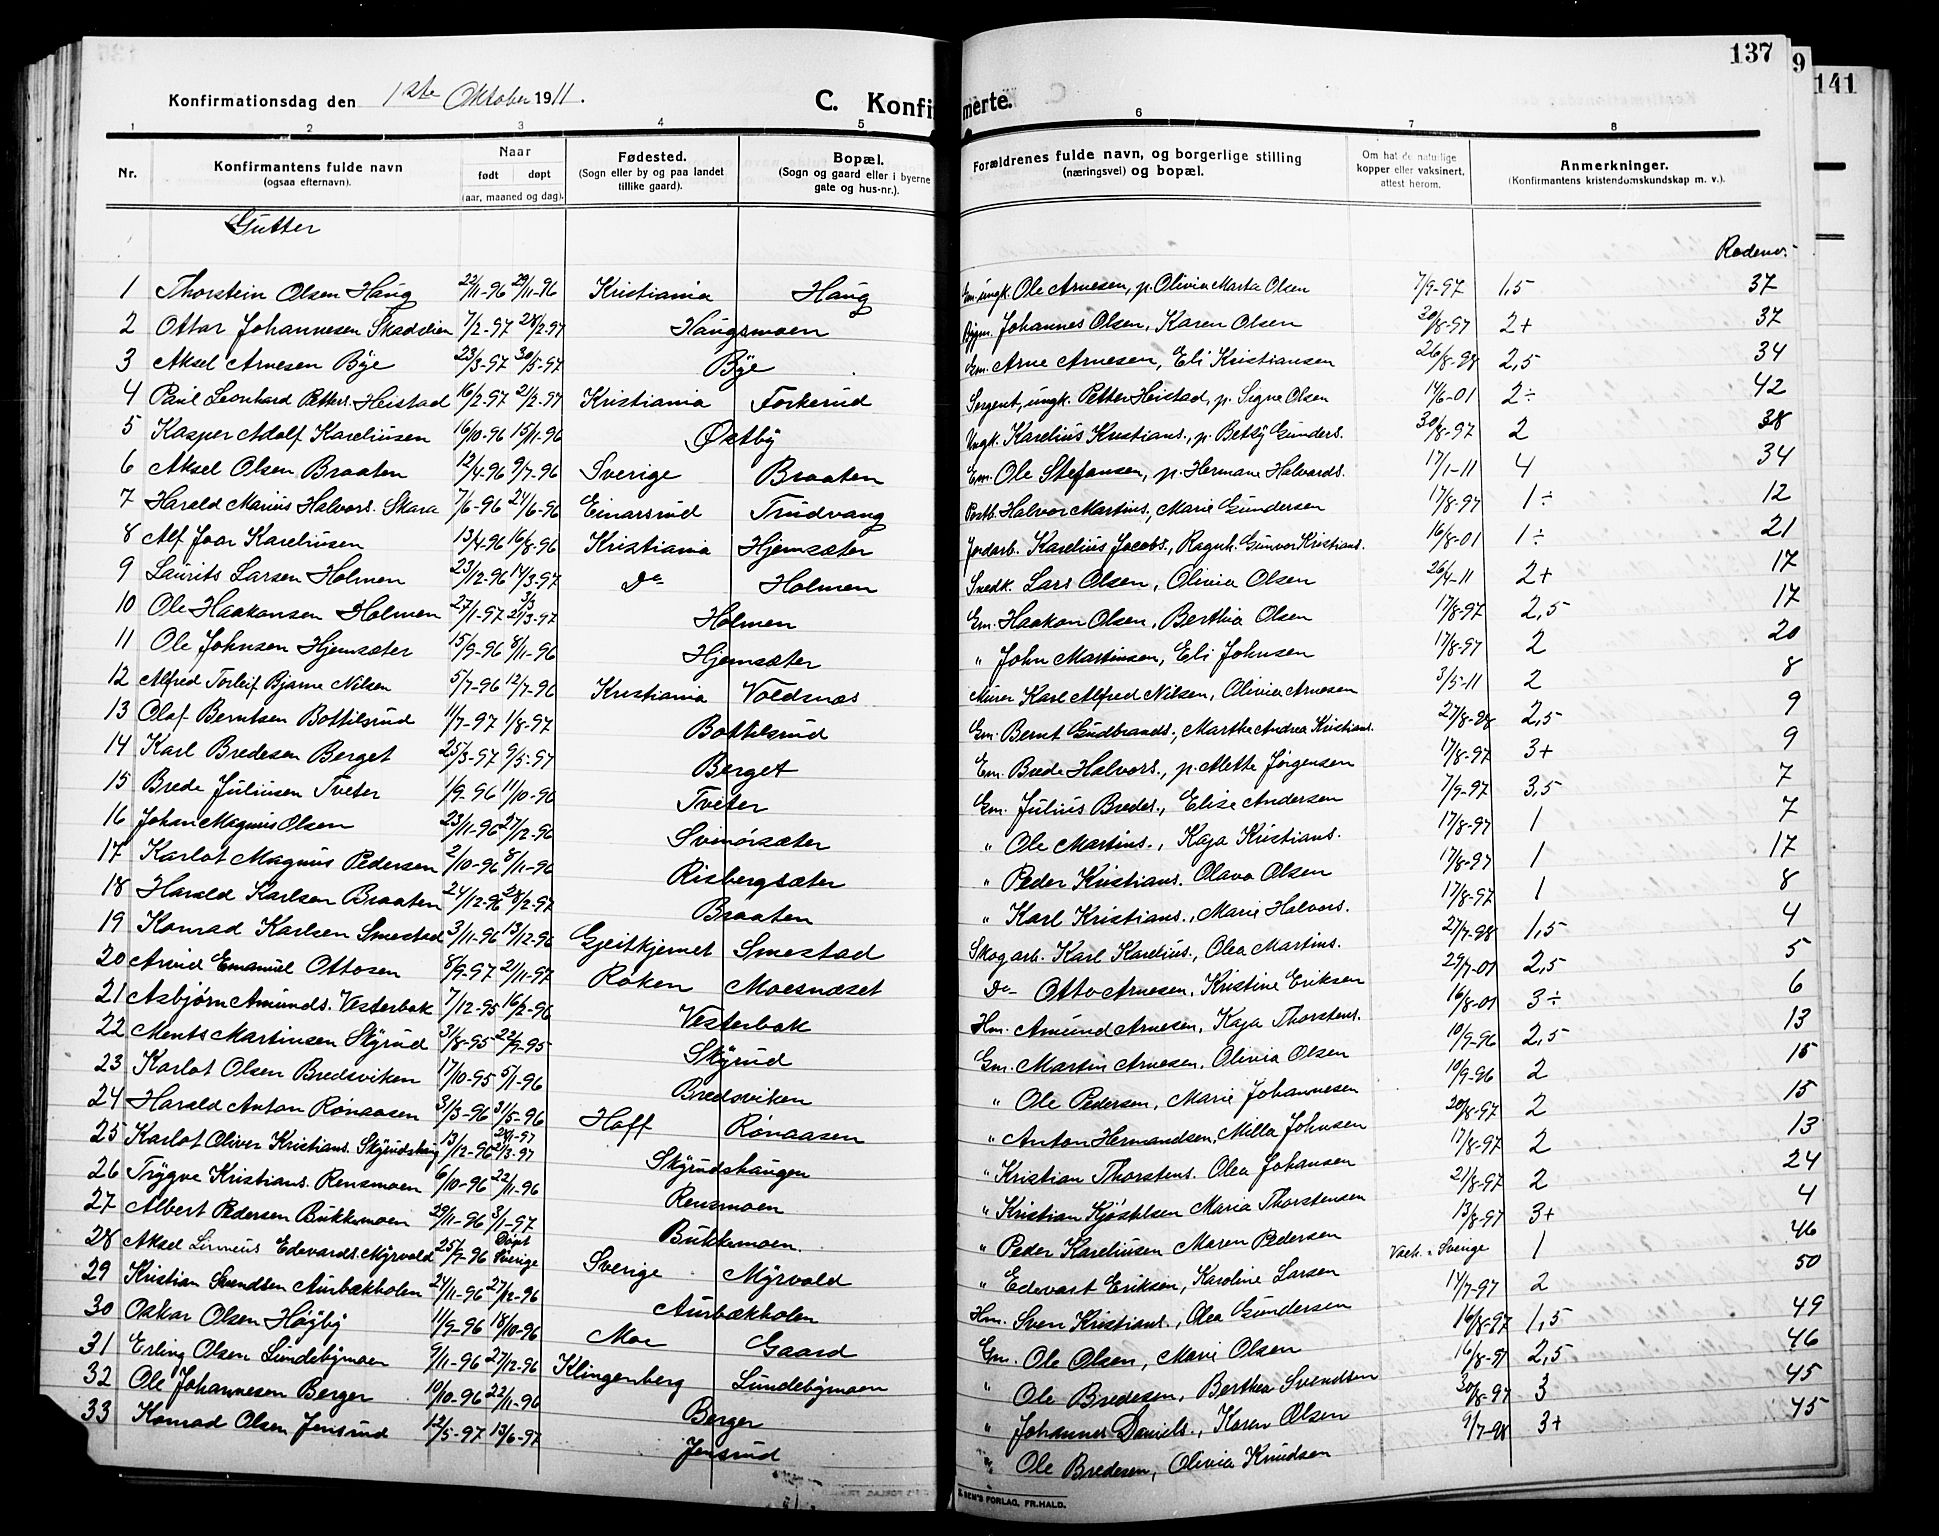 137
9
141
Konfirmationsdag den 1ste Oktober 1911.
C. Konfirmerte.
1 2 3 4 5 6 7 8
Nr.
Konfirmantens fulde navn (ogsaa efternavn).
Naar født døpt (aar, maaned og dag).
Fødested. (Sogn eller by og paa landet tillike gaard).
Bopæl. (Sogn og gaard eller i byerne gate og hus-nr.).
Forældrenes fulde navn, og borgerlige stilling (næringsvei) og bopæl.
Om hat de naturlige kopper eller vaksinert, attest herom.
Anmerkninger. (Konfirmantens kristendomskundskap m. v.).
Gutter
Rodenr.
1 Thorstein Olsen Haug 22/11-96 29/11-96 Kristiania Haug Em. ungk. Ole Arnesen, p. Olivia Marta Olsen 7/9-97 1,5 37
2 Ottar Johannesen Skadslien 7/2-97 28/2-97 Haugsmoen Bygm. Johannes Olsen, Karen Olsen 20/8-97 2+ 37
3 Aksel Arnesen Bye 23/3-97 30/5-97 Bye Gm. Arne Arnesen, Eli Kristiansen 26/8-98 2,5 34
4 Paul Leonhard Petters. Heistad 16/2-97 21/2-97 Kristiania Forkerud Sergent, ungk. Petter Heistad, p. Signe Olsen 14/6-01 2÷ 42
5 Kasper Adolf Kareliusen 16/10-96 15/11-96 Østby Ungk. Karelius Kristians., p. Betsy Gunders. 30/8-97 2 38
6 Aksel Olsen Braaten 12/4-96 9/7-96 Sverige Braaten Em. Ole Stefansen, p. Hermane Halvards. 17/1-11 4 34
7 Harald Marius Halvors. Skara 7/6-96 24/6-96 Einarsrud Trudvang Postb. Halvor Martins., Marie Gundersen 17/8-97 1÷ 12
8 Alf Joar Kareliusen 13/4-96 16/8-96 Kristiania Hjemsæter Jordarb. Karelius Jacobs., Ragnh. Gunvor Kristians. 16/8-01 1÷ 21
9 Laurits Larsen Holmen 23/12-96 14/3-97 Do Holmen Snedk. Lars Olsen, Olivia Olsen 26/4-11 2+ 17
10 Ole Haakonsen Holmen 27/1-97 3/3 21/3-97 Holmen Gm. Haakon Olsen, Berthia Olsen 17/8-97 2,5 17
11 Ole Johnsen Hjemsæter 15/9-96 8/11-96 Hjemsæter " John Martinsen, Eli Johnsen 17/8-97 2 20
12 Alfred Torleif Bjarne Nilsen 5/7-96 12/7-96 Kristiania Voldsnæs Murer Karl Alfred Nilsen, Olivia Arnesen 3/5-11 2 8
13 Olaf Berntsen Bottilsrud 11/7-97 1/8-97 Bottilsrud Gm. Bernt Gudbrands., Marthe Andrea Kristians. 27/8-98 2,5 9
14 Karl Bredesen Berget 25/3-97 9/5-97 Berget Em. Brede Halvors., p. Mette Jørgensen 17/8-97 3+ 9
15 Brede Juliusen Tveter 1/9-96 11/10-96 Tveter Gm. Julius Bredes., Elise Andersen 7/9-97 3,5 7
16 Johan Magnus Olsen 23/11-96 27/12-96 Svinørsæter " Ole Martins., Kaja Kristians. 17/8-97 1 7
17 Karlot Magnus Pedersen 2/10-96 8/11-96 Risbergsæter " Peder Kristians. Olava Olsen 17/8-97 1 17
18 Harald Karlsen Braaten 24/12-96 28/2-97 Braaten " Karl Kristians., Marie Halvors. 17/8-97 1 8
19 Konrad Karlsen Smestad 3/11-96 13/12-96 Gjeitkjernet Smestad Skogarb. Karl Karelius., Olea Martins. 27/7-98 1,5 4
20 Arvid Emanuel Ottosen 8/9-97 21/11-97 Røken Moesnæset Do Otto Arnesen, Kristine Eriksen 29/7-01 2,5 5
21 Asbjørn Amunds. Vesterbak 7/12-95 16/2-96 Vesterbak Hm. Amund Arnesen, Kaja Thorstens. 16/8-01 3÷ 6
22 Ments Martinsen Skyrud 31/8-95 22/9-95 Skyrud Gm. Martin Arnesen, Olivia Olsen 10/9-96 2,5 13
23 Karlot Olsen Bredsviken 17/10-95 5/1-96 Bredsviken " Ole Pedersen, Marie Johannesen 10/9-96 2 15
24 Harald Anton Rønaasen 31/3-96 31/5-96 Hoff Rønaasen " Anton Hermandsen, Milla Johnsen 20/8-97 2 15
25 Karlot Oliver Kristians. Skyrudshaug 13/12-96 24/1-97 21/3-97 Skyrudshaugen " Kristian Thorstens. Olea Johansen 17/8-97 2 13
26 Trygve Kristians. Rensmoen 6/10-96 22/11-96 Rensmoen " Kristian Kjøstelsen Maria Thorstensen 21/8-97 2 24
27 Albert Pedersen Bukkemoen 29/11-96 3/1-97 Bukkemoen. " Peder Kareliusen Maren Pedersen 13/8-97 3+ 4
28 Aksel Linneus Edevards. Myrvold 25/7-96 Døpt Sverige Sverige Myrvold " Edevart Eriksen, Karoline Larsen Vach. i Sverige 1 46
29 Kristian Svendsen Aurbækholen 24/11-96 27/12-96 Aurbækholen Hm. Sven Kristians., Olea Gundersen 14/7-97 2 50
30 Oskar Olsen Høgby 11/9-96 18/10-96 Moe Gaard Gm. Ole Olsen, Marie Olsen 16/8-97 1,5 49
31 Erling Olsen Lundebymoen 9/11-96 27/12-96 Klingenberg Lundebymoen " Ole Bredesen, Berthea Svendsen 16/8-97 2,5 46
32 Ole Johannesen Berger 10/10-96 22/11-96 Berger " Johannes Daniels., Karen Olsen 30/8-97 3 45
33 Konrad Olsen Jensrud 12/5-97 13/6-97 Jensrud " Ole Bredesen, Olivia Knudsen 9/7-98 3+ 45
SEN'S FORLAG, FR.HALD.